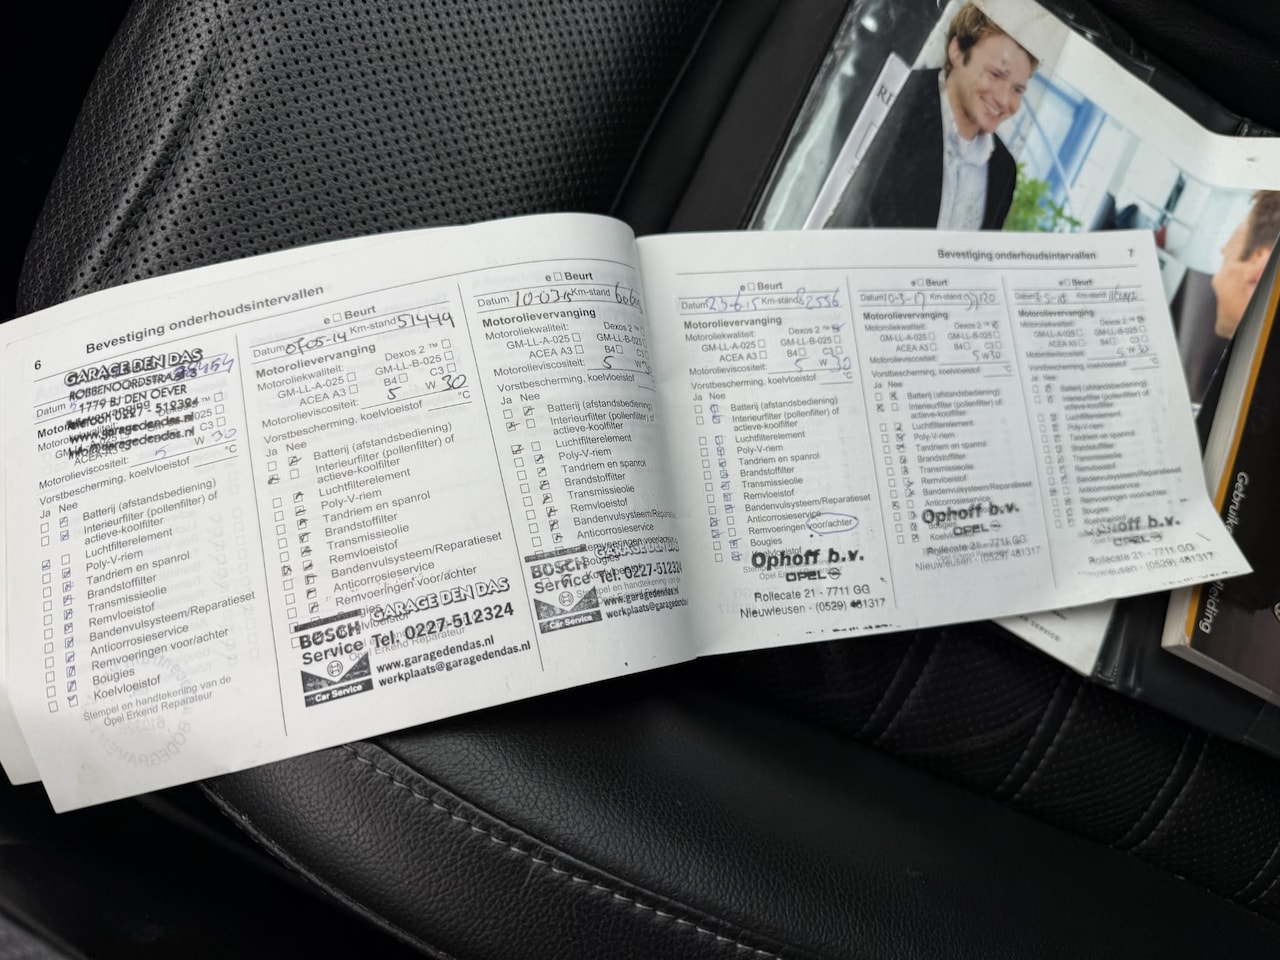 6
Bevestiging onderhoudsintervallen
GARAGE DEN DAS
ROBBENOORDSTRAAT 8
Datum
1779 BJ DEN OEVER
Telefoon 0227 - 512324
www.garagedendas.nl
info@garagedendas.nl
Motorolieviscositeit: 5 W 30
Vorstbescherming, koelvloeistof °C
Ja Nee
Batterij (afstandsbediening)
Interieurfilter (pollenfilter) of
actieve-koolfilter
Luchtfilterelement
Poly-V-riem
Tandriem en spanrol
Brandstoffilter
Transmissieolie
Remvloeistof
Bandenvulsysteem/Reparatieset
Anticorrosieservice
Remvoeringen voor/achter
Bougies
Koelvloeistof
Stempel en handtekening van de
Opel Erkend Reparateur
e Beurt
Datum 01-05-14 Km-stand 51449
Motorolievervanging
Motoroliekwaliteit: Dexos 2 ™
GM-LL-A-025 GM-LL-B-025
ACEA A3 B4 C3
Motorolieviscositeit: 5 W 30
Vorstbescherming, koelvloeistof °C
Ja Nee
Batterij (afstandsbediening)
Interieurfilter (pollenfilter) of
actieve-koolfilter
Luchtfilterelement
Poly-V-riem
Tandriem en spanrol
Brandstoffilter
Transmissieolie
Remvloeistof
Bandenvulsysteem/Reparatieset
Anticorrosieservice
Remvoeringen voor/achter
GARAGE DEN DAS
BOSCH
Service
Tel. 0227-512324
www.garagedendas.nl
werkplaats@garagedendas.nl
Car Service
e Beurt
Datum 10-03-15 Km-stand
Motorolievervanging
Motoroliekwaliteit: Dexos 2 ™
GM-LL-A-025 GM-LL-B-025
ACEA A3 B4 C3
Motorolieviscositeit: 5 W 30
Vorstbescherming, koelvloeistof
Ja Nee
Batterij (afstandsbediening)
Interieurfilter (pollenfilter) of
actieve-koolfilter
Luchtfilterelement
Poly-V-riem
Tandriem en spanrol
Brandstoffilter
Transmissieolie
Remvloeistof
Bandenvulsysteem/Reparatieset
Anticorrosieservice
Remvoeringen voor/achter
GARAGE DEN DAS
BOSCH
Service
Tel. 0227-512324
www.garagedendas.nl
werkplaats@garagedendas
Car Service
Bevestiging onderhoudsintervallen 7
e Beurt
Datum 23-6-15 Km-stand 82556
Motorolievervanging
Motoroliekwaliteit: Dexos 2 ™
GM-LL-A-025 GM-LL-B-025
ACEA A3 B4 C3
Motorolieviscositeit: 5 W 30
Vorstbescherming, koelvloeistof °C
Ja Nee
Batterij (afstandsbediening)
Interieurfilter (pollenfilter) of
actieve-koolfilter
Luchtfilterelement
Poly-V-riem
Tandriem en spanrol
Brandstoffilter
Transmissieolie
Remvloeistof
Bandenvulsysteem/Reparatieset
Anticorrosieservice
Remvoeringen voor/achter
Bougies
Ophoff b.v.
OPEL
Rollecate 21 - 7711 GG
Nieuwleusen - (0529) 481317
e Beurt
Datum 10-3-17 Km-stand 97120
Motorolievervanging
Motoroliekwaliteit: Dexos 2 ™
GM-LL-A-025 GM-LL-B-025
ACEA A3 B4 C3
Motorolieviscositeit: 5 W 30
Vorstbescherming, koelvloeistof °C
Ja Nee
Batterij (afstandsbediening)
Interieurfilter (pollenfilter) of
actieve-koolfilter
Luchtfilterelement
Poly-V-riem
Tandriem en spanrol
Brandstoffilter
Transmissieolie
Remvloeistof
Bandenvulsysteem/Reparatieset
Anticorrosieservice
Ophoff b.v.
OPEL
Rollecate 21 - 7711 GG
Nieuwleusen - (0529) 481317
e Beurt
Datum Km-stand
Motorolievervanging
Motoroliekwaliteit: Dexos 2 ™
GM-LL-A-025 GM-LL-B-025
ACEA A3 B4 C3
Motorolieviscositeit: 5 W 30
Vorstbescherming, koelvloeistof °C
Ja Nee
Batterij (afstandsbediening)
Interieurfilter (pollenfilter) of
actieve-koolfilter
Luchtfilterelement
Poly-V-riem
Tandriem en spanrol
Brandstoffilter
Transmissieolie
Remvloeistof
Bandenvulsysteem/Reparatieset
Anticorrosieservice
Remvoeringen voor/achter
Bougies
Koelvloeistof
Ophoff b.v.
OPEL
Rollecate 21 - 7711 GG
Nieuwleusen - (0529) 481317